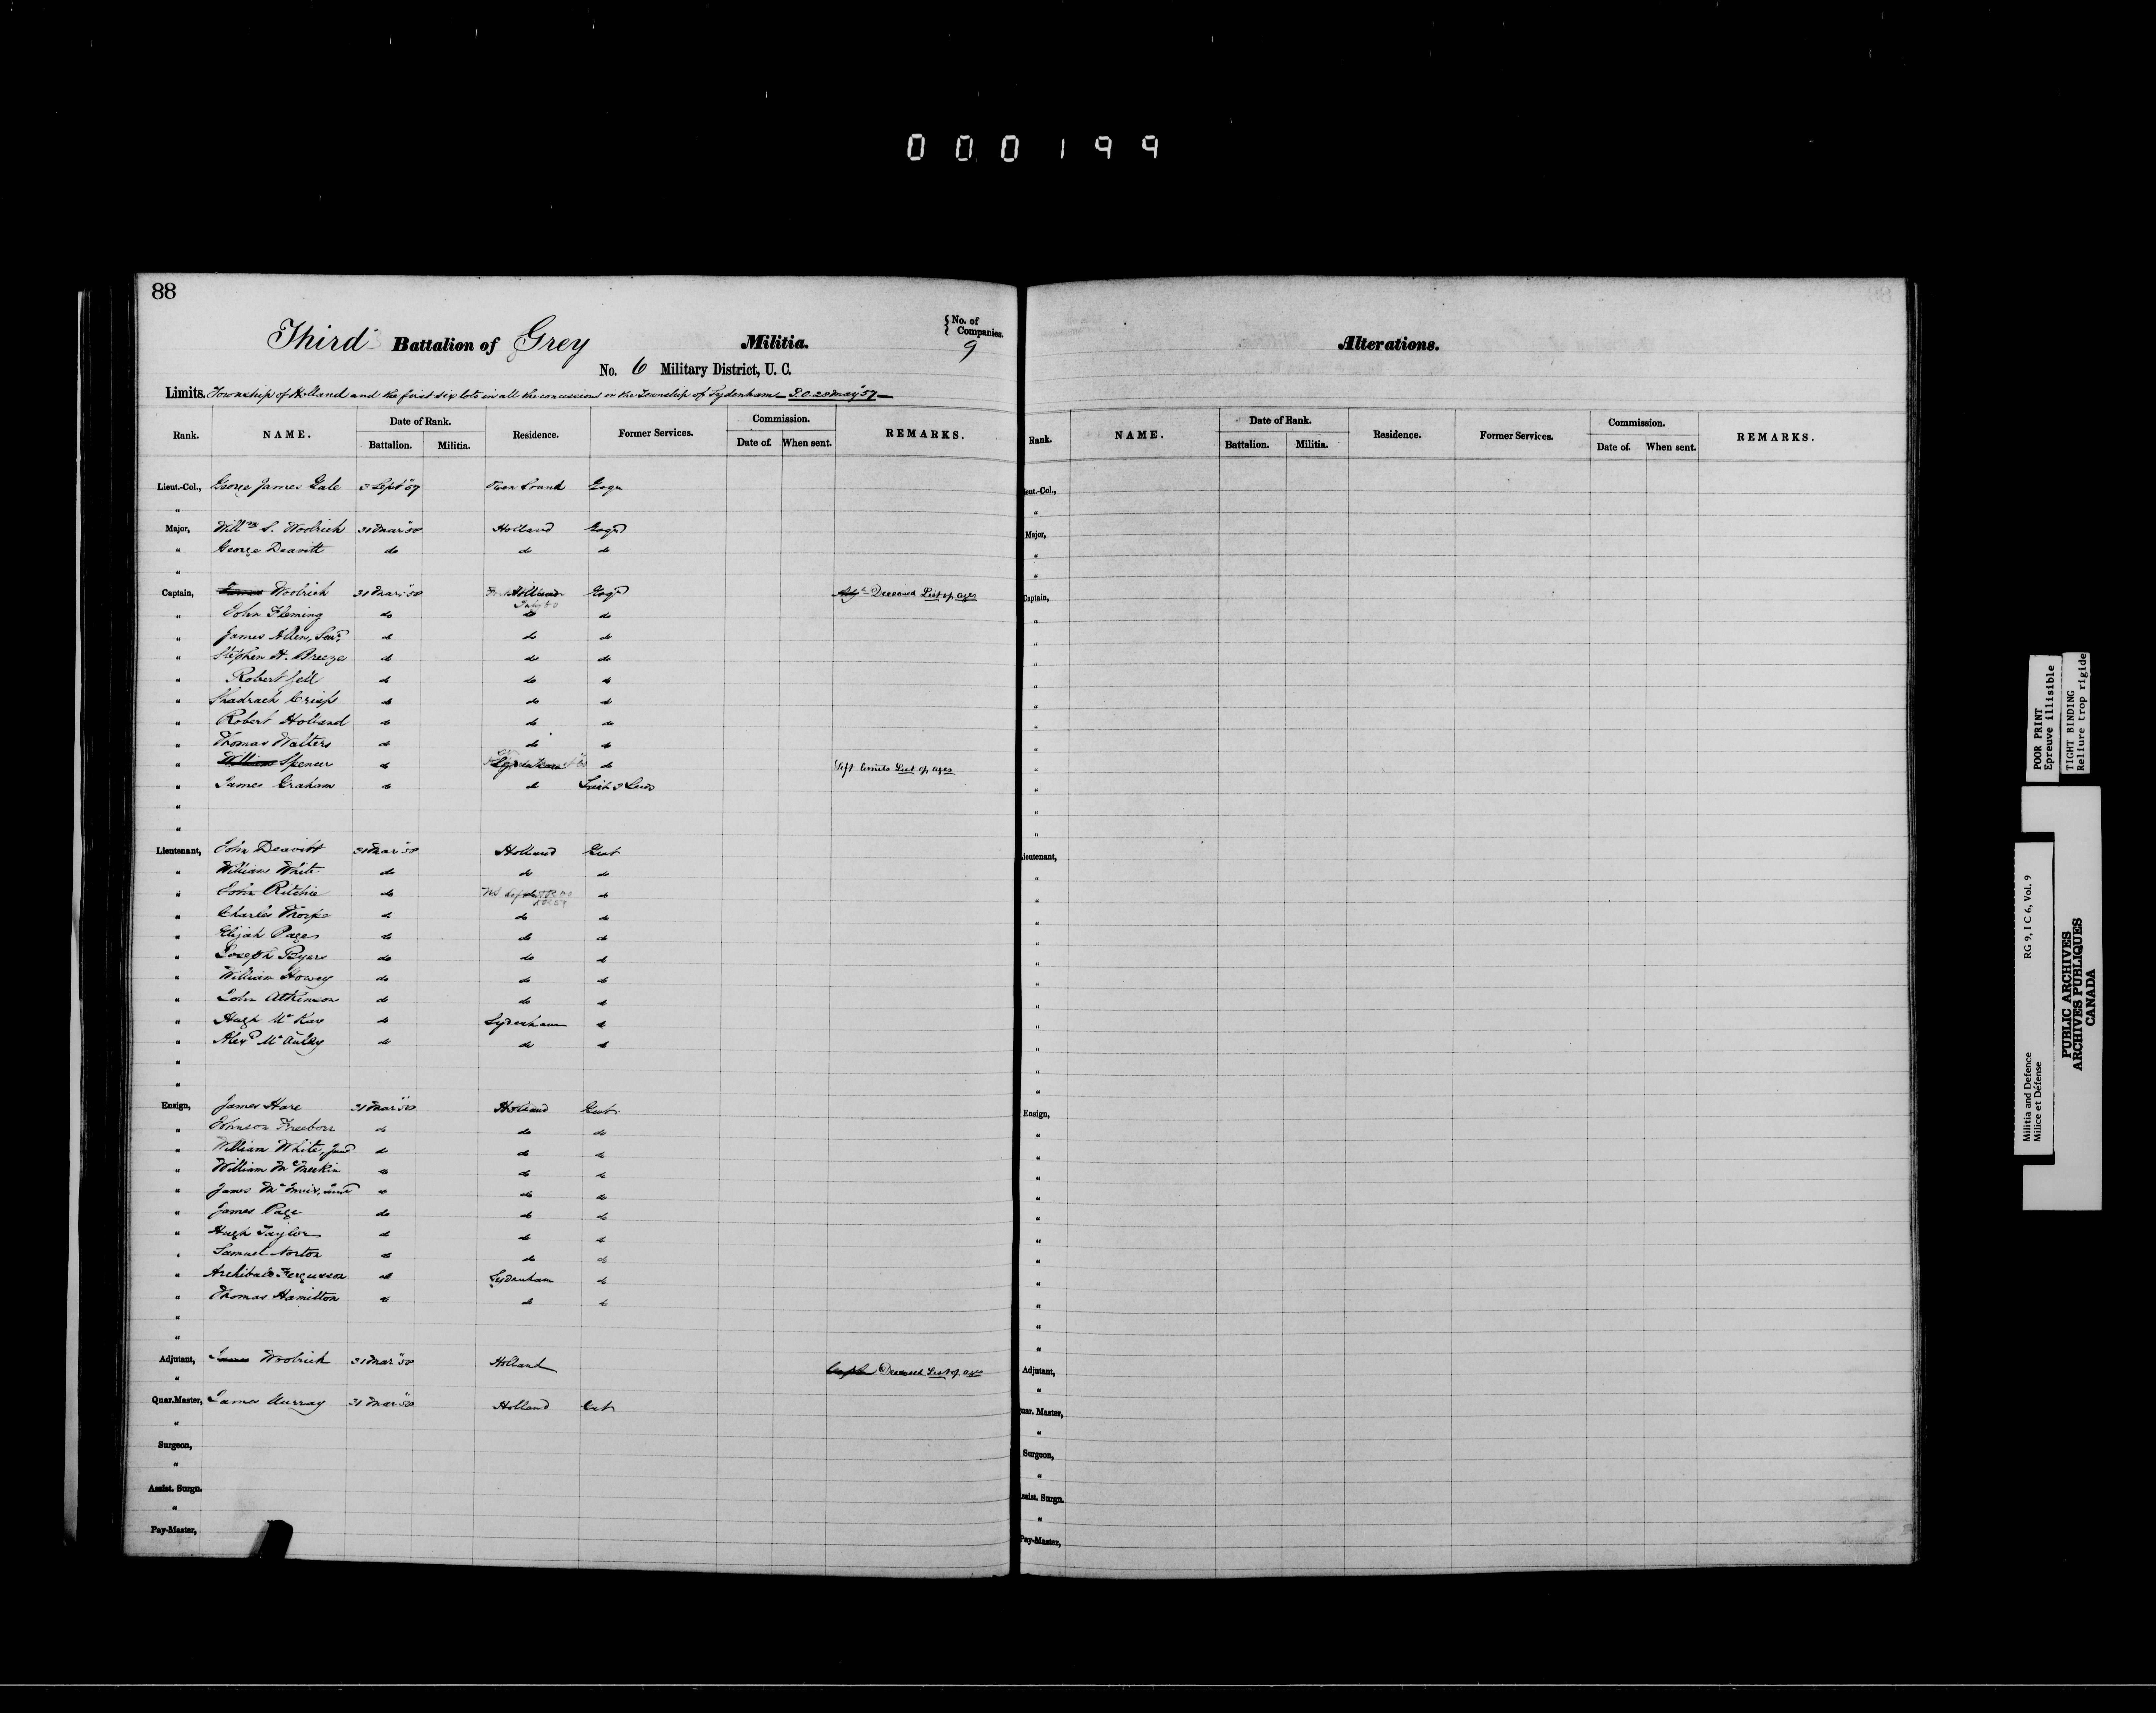 000199
88
Third Battalion of Grey Militia. { No. of Companies. 9
No. 6 Military District, U. C.
Limits. Township of Holland and the first six lots in all the concessions in the Township of Sydenham G.O. 20 May '57
Rank. NAME. Date of Rank. Battalion. Militia. Residence. Former Services. Commission. Date of. When sent. REMARKS.
Lieut.-Col., George James Gale 3 Sept '57 Owen Sound Esqr
"
Major, Willm S. Woolrich 31 Mar '58 Holland Esqr
" George Deavitt do do do
"
Captain, James Woolrich 31 Mar '58 Holland Esqr Adjt Deceased List of ages
" John Fleming do do do
" James Allen, Senr do do do
" Stephen H. Breeze do do do
" Robert Gell do do do
" Shadrach Crisp do do do
" Robert Holland do do do
" Thomas Walters do do do
" William Spencer do Sydenham do Left limits List of ages
" James Graham do do
"
"
Lieutenant, John Deavitt 31 Mar '58 Holland Gent
" William White do do do
" John Ritchie do do do
" Charles Thorpe do do do
" Elijah Page do do do
" Joseph Byers do do do
" William Howey do do do
" John Atkinson do do do
" Hugh McKee do Sydenham do
" Alexr McAulay do do do
"
"
Ensign, James Hare 31 Mar '58 Holland Gent
" Johnson Freeborn do do do
" William White, Junr do do do
" William McMeekin do do do
" James Mc do do do
" James Page do do do
" Hugh Taylor do do do
" Samuel Norton do do do
" Archibald Fergusson do Sydenham do
" Thomas Hamilton do do do
"
"
Adjutant, James Woolrich 31 Mar '58 Holland Capt Deceased List of ages
"
Quar.Master, James Murray 31 Mar '58 Holland Gent
"
Surgeon,
"
Assist. Surgn.
"
Pay-Master,
Alterations.
Rank. NAME. Date of Rank. Battalion. Militia. Residence. Former Services. Commission. Date of. When sent. REMARKS.
ieut.-Col.,
"
Major,
"
"
Captain,
"
"
"
"
"
"
"
"
"
"
"
Lieutenant,
"
"
"
"
"
"
"
"
"
"
"
Ensign,
"
"
"
"
"
"
"
"
"
"
"
Adjutant,
"
uar. Master,
"
Surgeon,
"
ssist. Surgn.
"
Pay-Master,
POOR PRINT
Epreuve illisible
TIGHT BINDING
Reliure trop rigide
Militia and Defence RG 9, I C 6, Vol. 9
Milice et Défense
PUBLIC ARCHIVES
ARCHIVES PUBLIQUES
CANADA